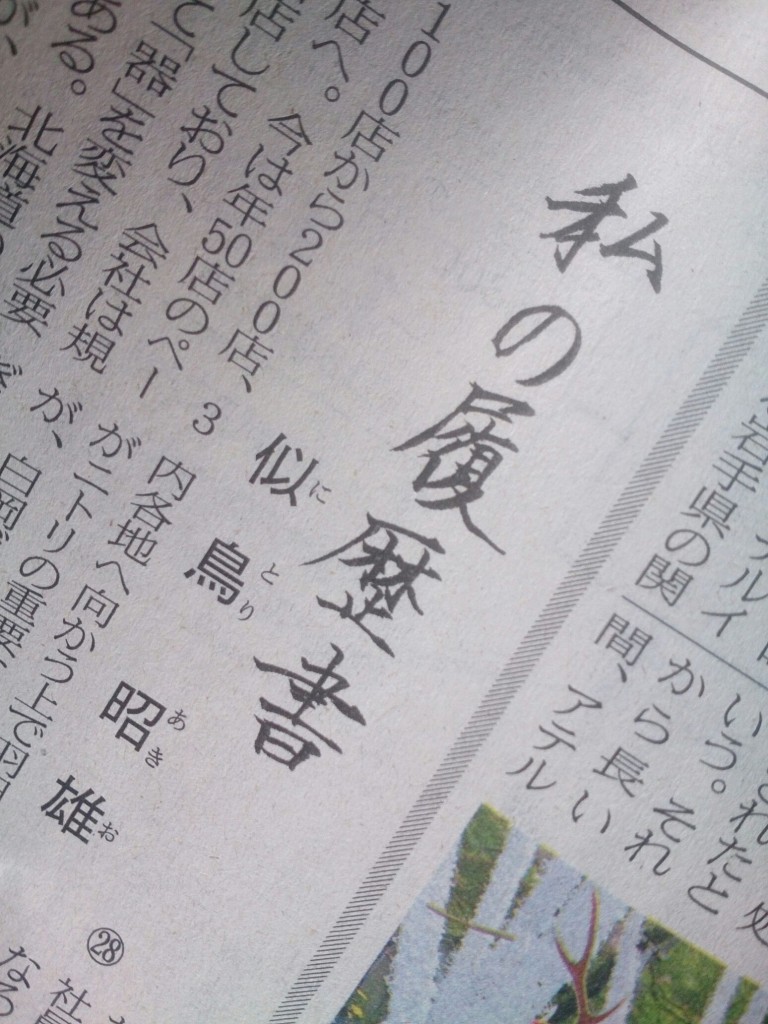 岩手県の関
アテルイ
いう。それ
から長い
間、アテル
私の履歴書
似鳥昭雄
にとり あきお
㉘
100店から200店、3
店へ。今は年50店のペー
店しており、会社は規
て「器」を変える必要
ある。北海道
内各地へ向かう上で
がニトリの重要
が、白岡
社員
なっ